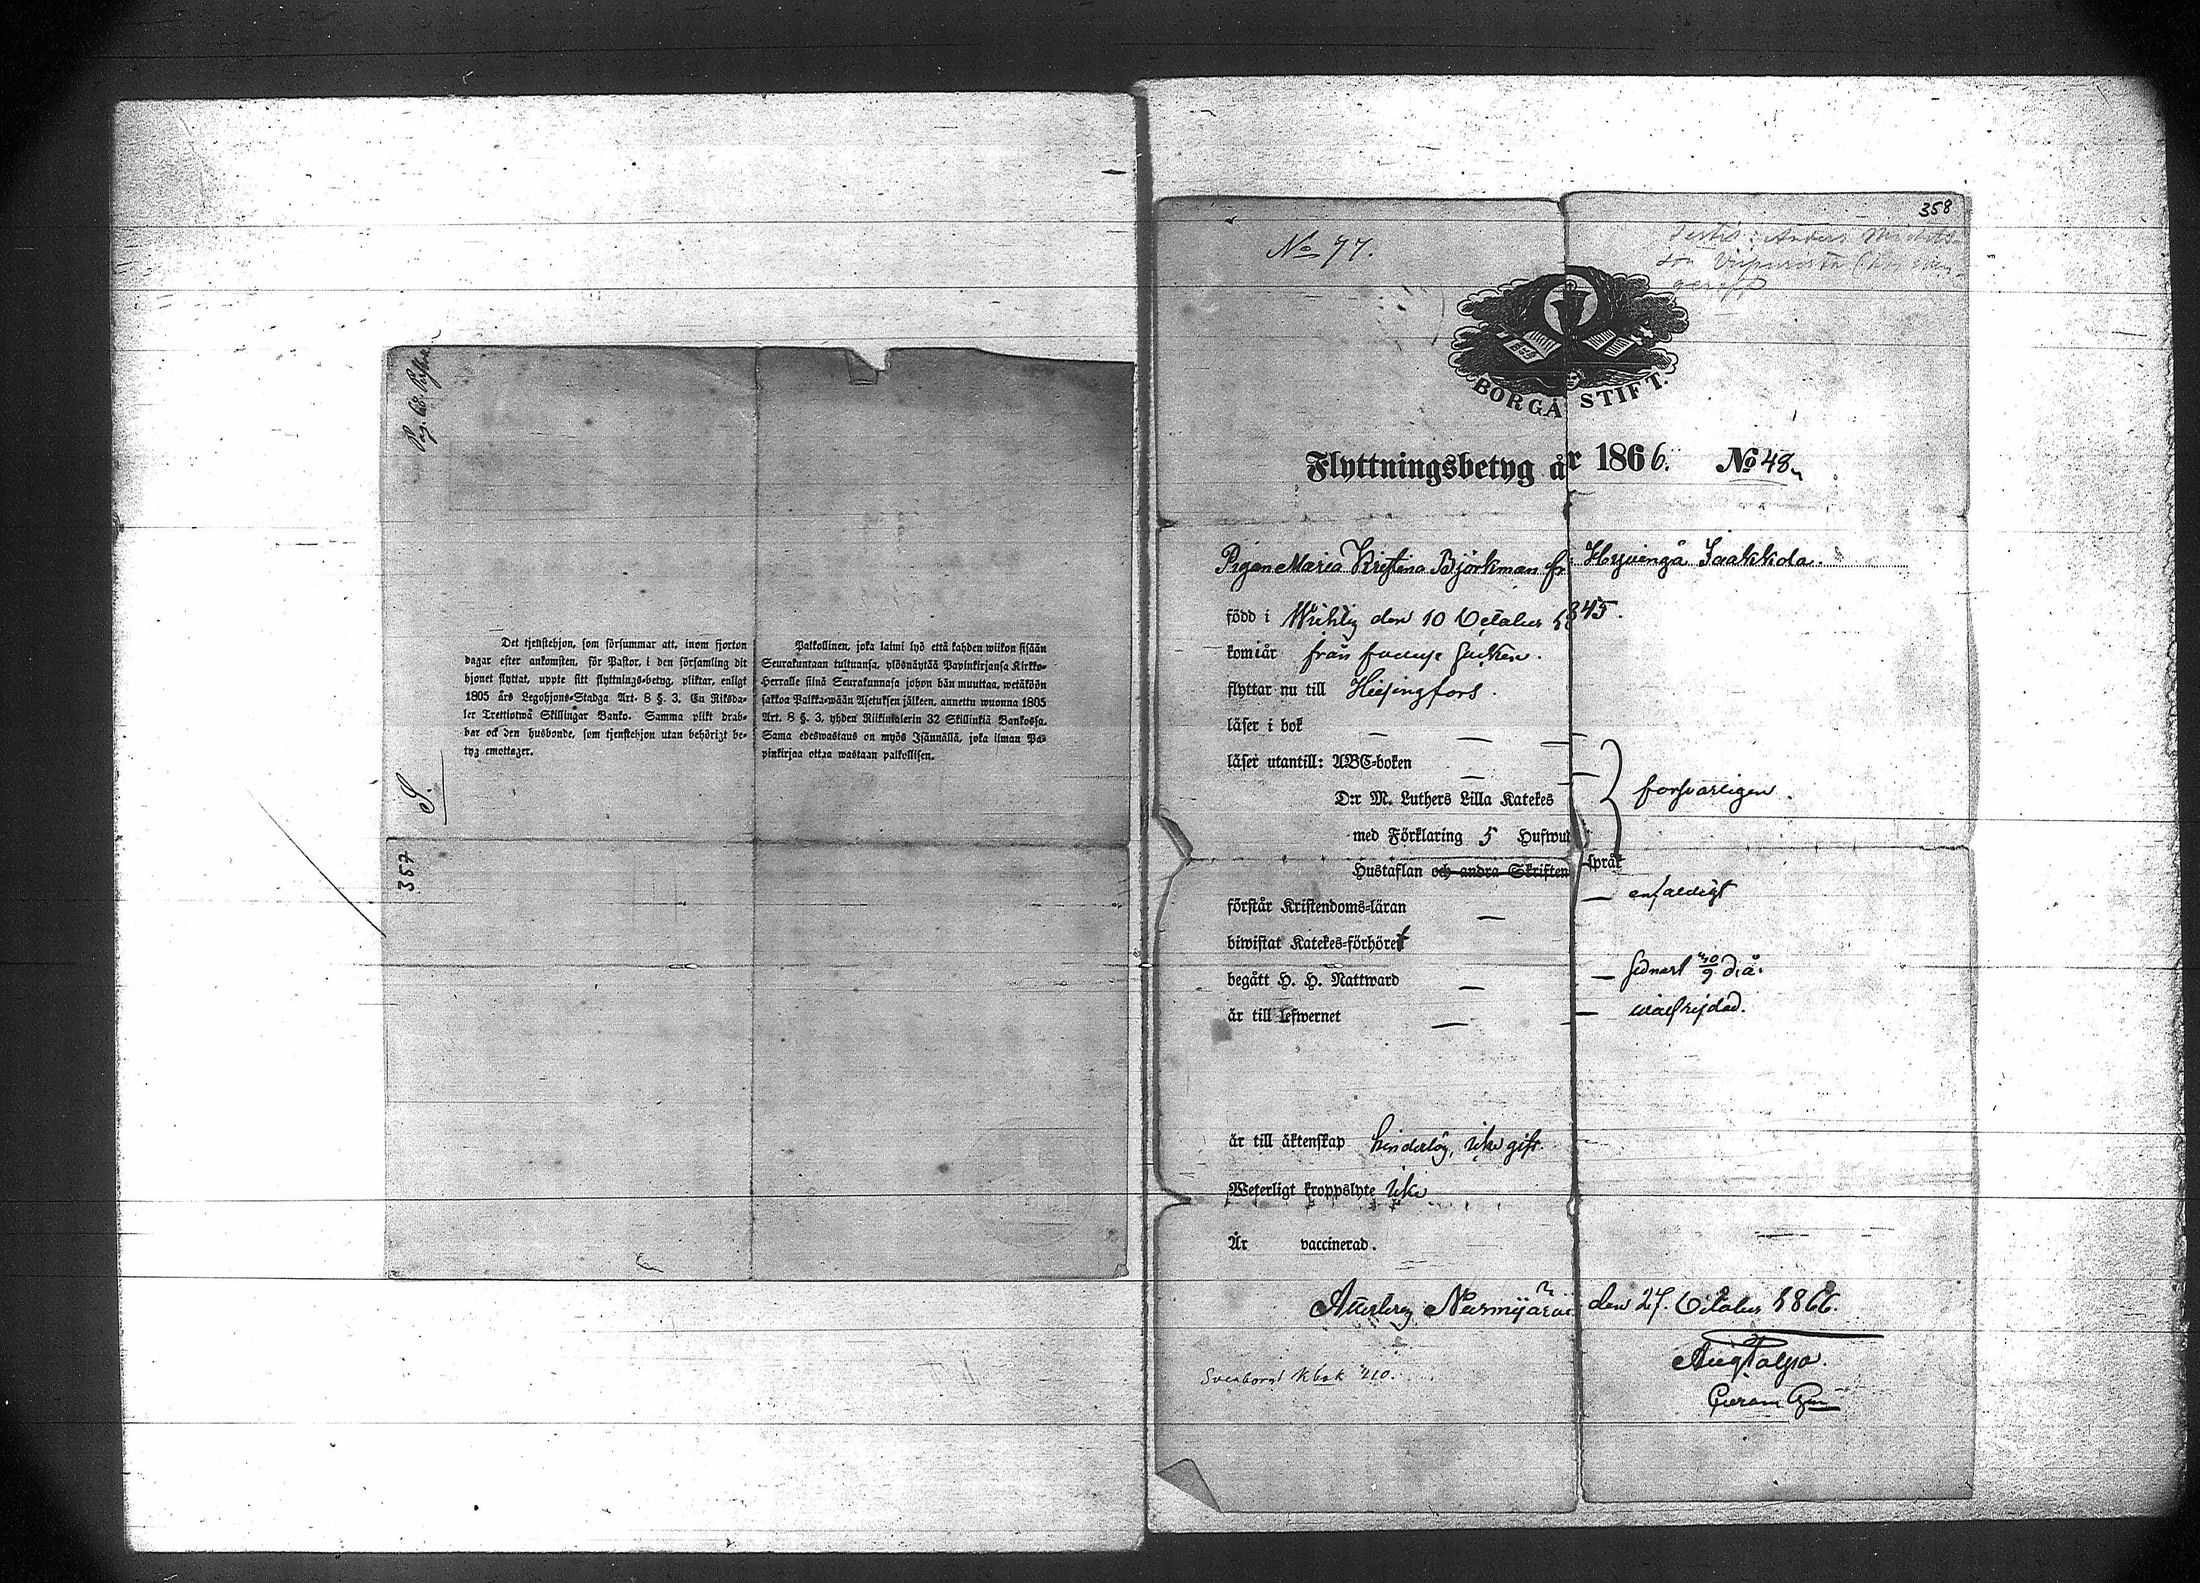 357
S.
Det tjenstehjon, som försummar att, inom fjorton
dagar efter ankomsten, för Pastor, i den församling dit
hjonet flyttat, uppte sitt flyttnings-betyg, pliktar, enligt
1805 års Legohjons-Stadga Art. 8 §. 3. En Riksda-
ler Trettiotwå Skillingar Banko. Samma plikt drab-
bar ock den husbonde, som tjenstehjon utan behörigt be-
tyg emottager.
Palkollinen, joka laimi lyö että kahden wiikon sisään
Seurakuntaan tultuansa, ylösnäytää Papinkirjansa Kirkko-
Herralle siinä Seurakunnasa johon hän muuttaa, wetäköön
sakkoa Palkka-wään Asetuksen jälkeen, annettu wuonna 1805
Art. 8 §. 3, yhden Riikintalerin 32 Skillinkiä Bankossa.
Sama edeswastaus on myös Isännällä, joka ilman Pa-
pinkirjaa ottaa wastaan palkollisen.
358
No 77.
BORGÅ STIFT.
Flyttningsbetyg år 1866. No 48
Pigan Maria Kristina Björkman fr. Hyvingå Jaakkola.
född i Wichtis den 10 October 1845.
kom år från
flyttar nu till Helsingfors.
läser i bok
läser utantill: ABC-boken
D:r M. Luthers Lilla Katekes försvarligen.
med Förklaring 5 Hufwud
Hustaflan och andra Skriften språk
förstår Kristendoms-läran enfaldigt
biwistat Katekes-förhöret
begått H. H. Nattward senast 30/9 d. å.
är till lefwernet wälfrejdad.
är till äktenskap hinderlös, icke gift
Weterligt kroppslyte icke
Är vaccinerad.
Nurmijärvi den 27. October 1866.
Sveaborgs Kbok 210.